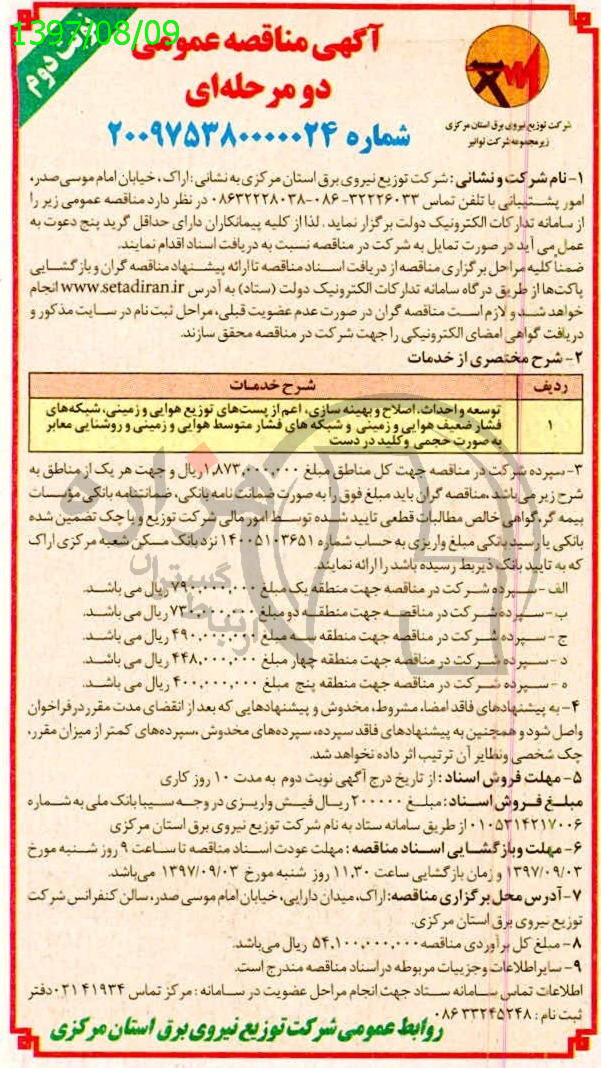 1397/08/09
نوبت دوم
آگهی مناقصه عمومی
دو مرحله‌ای
شماره ۲۰۰۹۷۵۳۸۰۰۰۰۰۰۲۴
شرکت توزیع نیروی برق استان مرکزی
زیرمجموعه شرکت توانیر
۱- نام شرکت و نشانی: شرکت توزیع نیروی برق استان مرکزی به نشانی: اراک، خیابان امام موسی صدر،
امور پشتیبانی با تلفن تماس ۳۲۲۲۶۰۳۳-۰۸۶-۰۸۶۳۲۲۲۸۰۳۸ در نظر دارد مناقصه عمومی زیر را
از سامانه تدارکات الکترونیک دولت برگزار نماید. لذا از کلیه پیمانکاران دارای حداقل گرید پنج دعوت به
عمل می آید در صورت تمایل به شرکت در مناقصه نسبت به دریافت اسناد اقدام نمایند.
ضمناً کلیه مراحل برگزاری مناقصه از دریافت اسناد مناقصه تا ارائه پیشنهاد مناقصه گران و بازگشایی
پاکت‌ها از طریق درگاه سامانه تدارکات الکترونیک دولت (ستاد) به آدرس www.setadiran.ir انجام
خواهد شد و لازم است مناقصه گران در صورت عدم عضویت قبلی، مراحل ثبت نام در سایت مذکور و
دریافت گواهی امضای الکترونیکی را جهت شرکت در مناقصه محقق سازند.
۲- شرح مختصری از خدمات
ردیف شرح خدمات
توسعه و احداث، اصلاح و بهینه سازی، اعم از پست‌های توزیع هوایی و زمینی، شبکه‌های
۱ فشار ضعیف هوایی و زمینی و شبکه های فشار متوسط هوایی و زمینی و روشنایی معابر
به صورت حجمی و کلید در دست
۳- سپرده شرکت در مناقصه جهت کل مناطق مبلغ ۱,۸۷۳,۰۰۰,۰۰۰ ریال و جهت هر یک از مناطق به
شرح زیر می‌باشد. مناقصه گران باید مبلغ فوق را به صورت ضمانت نامه بانکی، ضمانتنامه بانکی مؤسسات
بیمه گر، گواهی خالص مطالبات قطعی تایید شده توسط امور مالی شرکت توزیع و یا چک تضمین شده
بانکی یا رسید بانکی مبلغ واریزی به حساب شماره ۱۴۰۰۵۱۰۳۶۵۱ نزد بانک مسکن شعبه مرکزی اراک
که به تایید بانک ذیربط رسیده باشد را ارائه نمایند.
الف - سپرده شرکت در مناقصه جهت منطقه یک مبلغ ۷۹۰,۰۰۰,۰۰۰ ریال می باشد.
ب - سپرده شرکت در مناقصه جهت منطقه دو مبلغ ۷۳۰,۰۰۰,۰۰۰ ریال می باشد.
ج - سپرده شرکت در مناقصه جهت منطقه سه مبلغ ۴۹۰,۰۰۰,۰۰۰ ریال می باشد.
د - سپرده شرکت در مناقصه جهت منطقه چهار مبلغ ۴۴۸,۰۰۰,۰۰۰ ریال می باشد.
ه - سپرده شرکت در مناقصه جهت منطقه پنج مبلغ ۴۰۰,۰۰۰,۰۰۰ ریال می باشد.
۴- به پیشنهادهای فاقد امضا، مشروط، مخدوش و پیشنهادهایی که بعد از انقضای مدت مقرر در فراخوان
واصل شود و همچنین به پیشنهادهای فاقد سپرده، سپرده‌های مخدوش، سپرده‌های کمتر از میزان مقرر،
چک شخصی ونظایر آن ترتیب اثر داده نخواهد شد.
۵- مهلت فروش اسناد: از تاریخ درج آگهی نوبت دوم به مدت ۱۰ روز کاری
مبلغ فروش اسناد: مبلغ ۲۰۰۰۰۰۰ ریال فیش واریزی در وجه سیبا بانک ملی به شماره
۰۱۰۵۳۱۴۲۱۷۰۰۶ از طریق سامانه ستاد به نام شرکت توزیع نیروی برق استان مرکزی
۶- مهلت و بازگشایی اسناد مناقصه: مهلت عودت اسناد مناقصه تا ساعت ۹ روز شنبه مورخ
۱۳۹۷/۰۹/۰۳ و زمان بازگشایی ساعت ۱۱.۳۰ روز شنبه مورخ ۱۳۹۷/۰۹/۰۳ می‌باشد.
۷- آدرس محل برگزاری مناقصه: اراک، میدان دارایی، خیابان امام موسی صدر، سالن کنفرانس شرکت
توزیع نیروی برق استان مرکزی.
۸- مبلغ کل برآوردی مناقصه ۵۴,۱۰۰,۰۰۰,۰۰۰ ریال می‌باشد.
۹- سایر اطلاعات وجزییات مربوطه دراسناد مناقصه مندرج است.
اطلاعات تماس سامانه ستاد جهت انجام مراحل عضویت در سامانه: مرکز تماس ۴۱۹۳۴-۰۲۱ دفتر
ثبت نام: ۰۸۶۳۳۲۴۵۲۴۸
روابط عمومی شرکت توزیع نیروی برق استان مرکزی